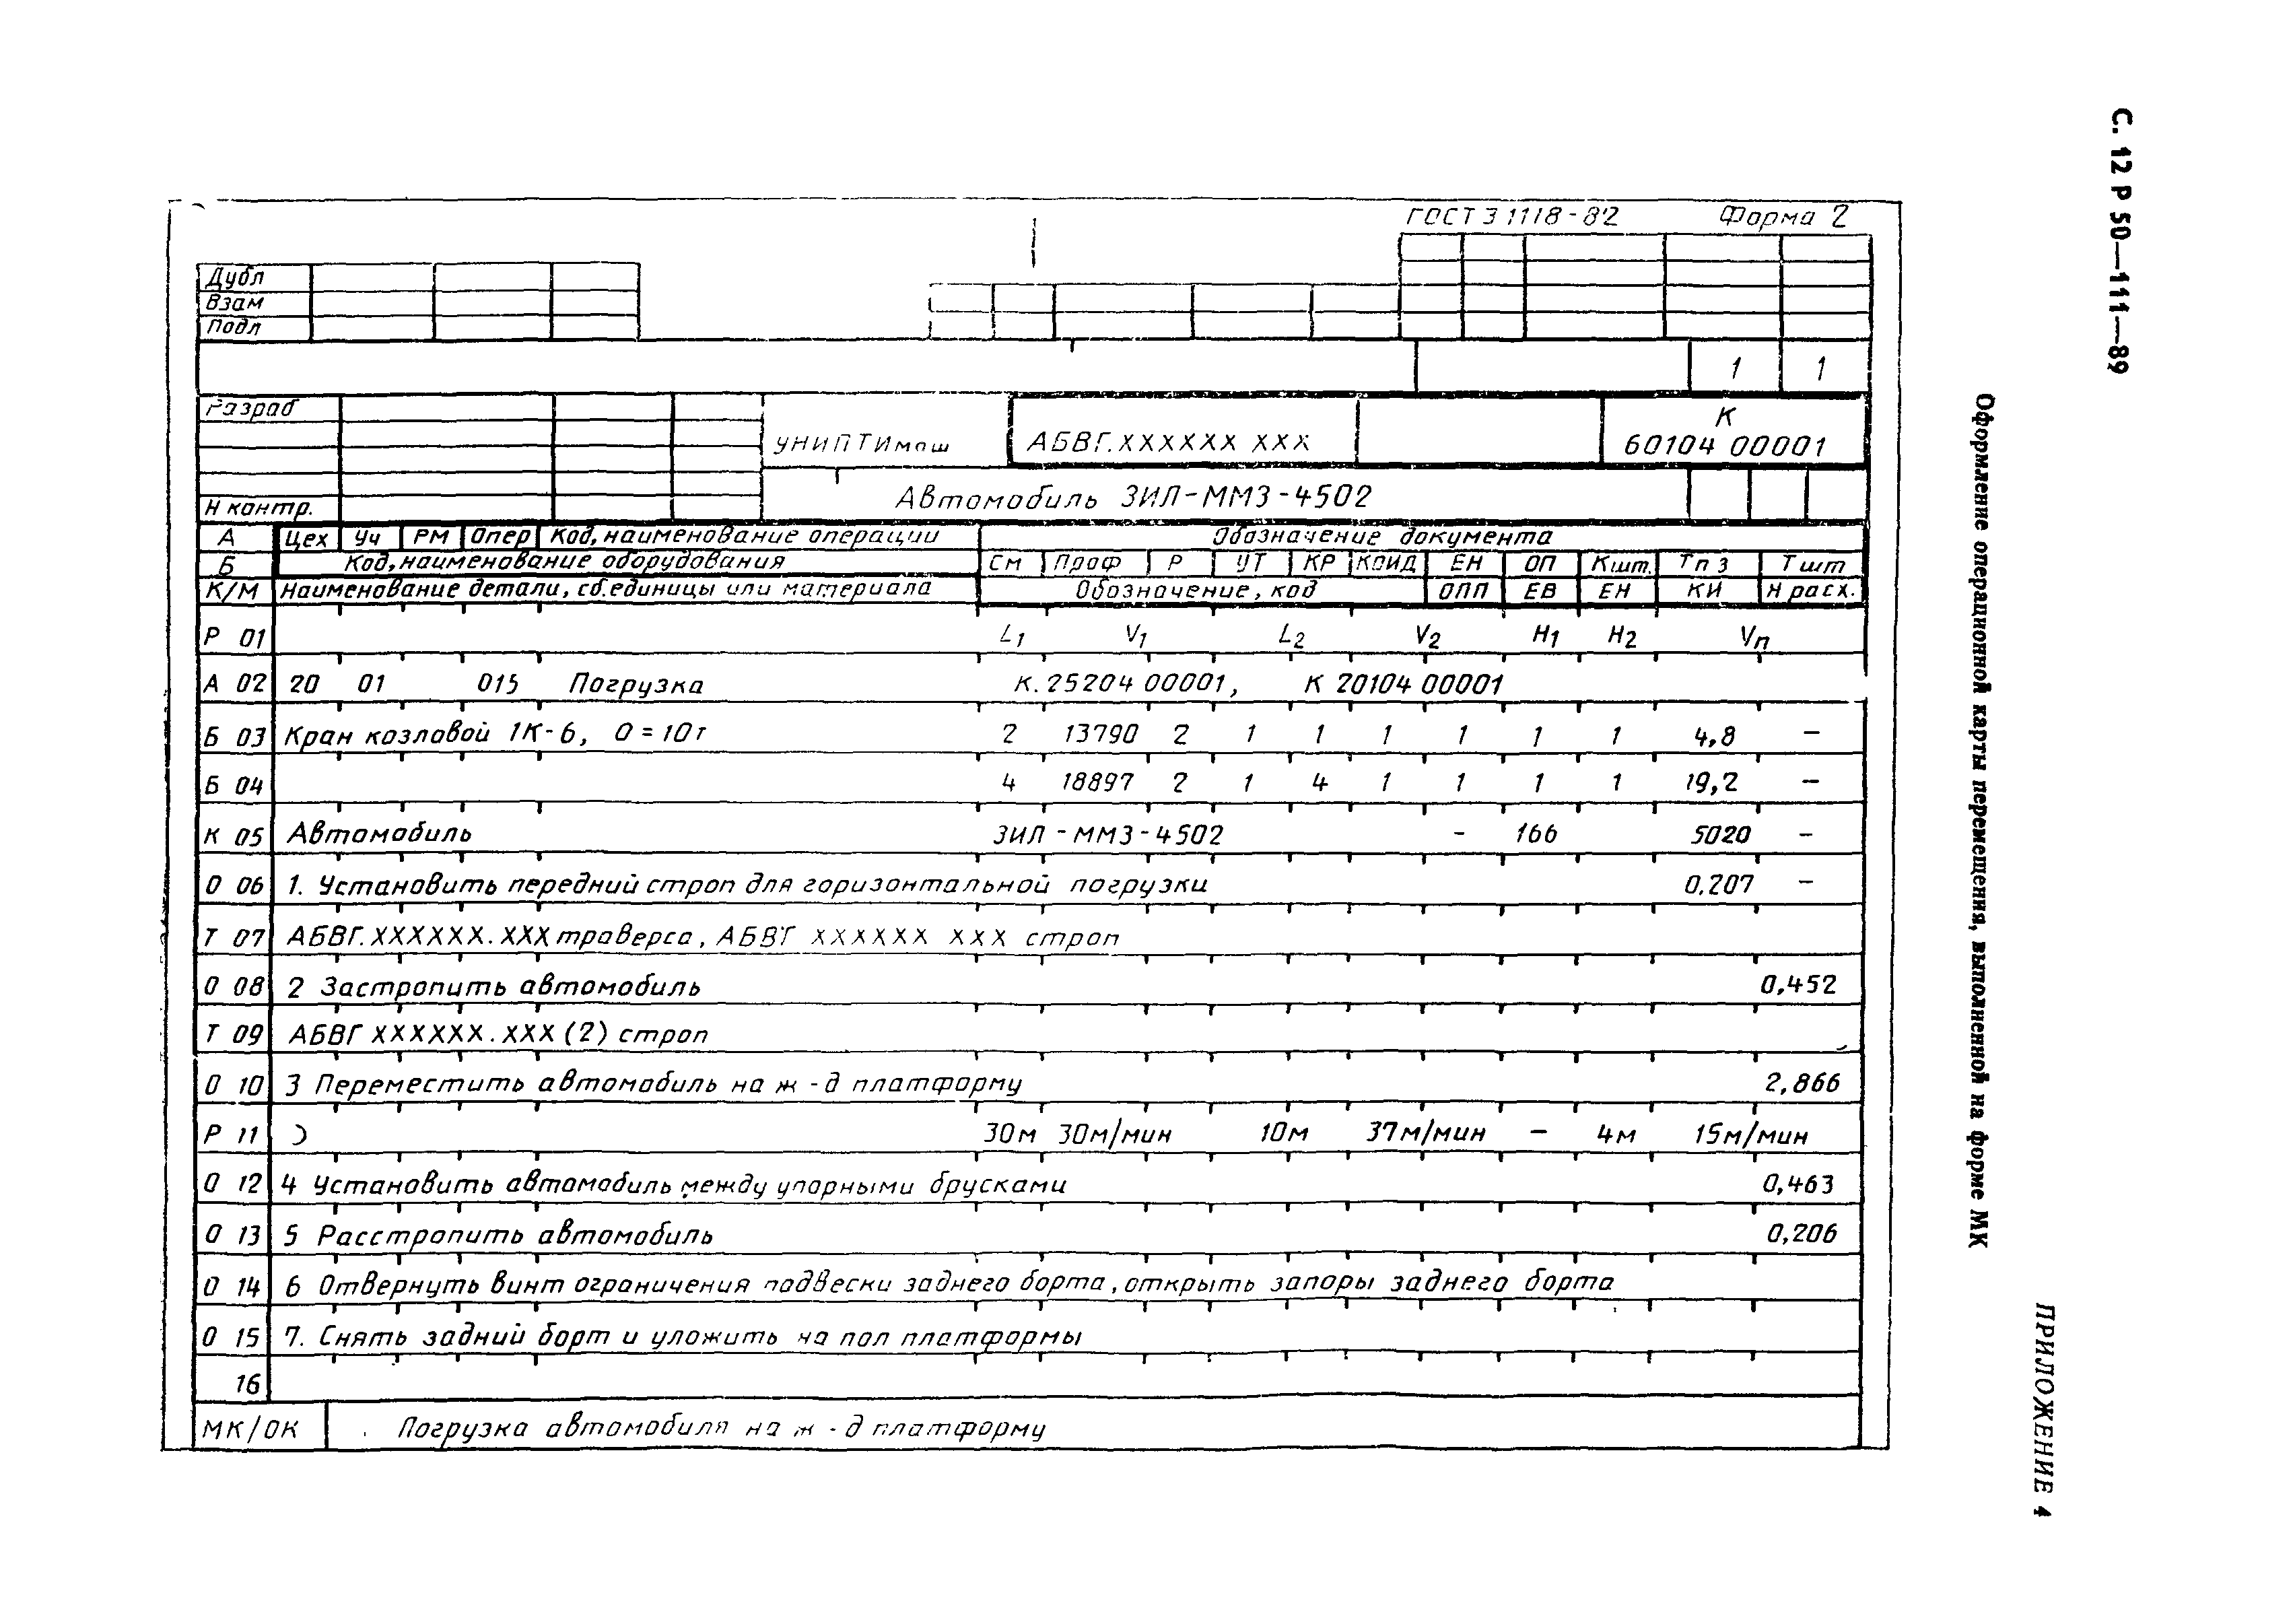 С. 12 Р 50—111—89
ПРИЛОЖЕНИЕ 4
Оформление операционной карты перемещения, выполненной на форме МК
ГОСТ 3 1118-82 Форма 2
Дубл
Взам
Подл
1 1
Разраб
УНИПТИмаш АБВГ.XXXXXX XXX К 60104 00001
Автомобиль ЗИЛ-ММЗ-4502
Н контр.
А Цех Уч РМ Опер Код, наименование операции Обозначение документа
Б Код, наименование оборудования См Проф Р УТ КР КОИД ЕН ОП Кшт. Тпз Тшт
К/М Наименование детали, сб.единицы или материала Обозначение, код ОПП ЕВ ЕН КИ Н расх.
Р 01 L1 V1 L2 V2 H1 H2 Vп
А 02 20 01 015 Погрузка К.25204 00001, К 20104 00001
Б 03 Кран козловой 1К-6, Q = 10т 2 13790 2 1 1 1 1 1 1 4,8 —
Б 04 4 18897 2 1 4 1 1 1 1 19,2 —
К 05 Автомобиль ЗИЛ-ММЗ-4502 - 166 5020 —
О 06 1. Установить передний строп для горизонтальной погрузки 0.207 —
Т 07 АБВГ.XXXXXX.XXX траверса, АБВГ XXXXXX XXX строп
О 08 2 Застропить автомобиль 0,452
Т 09 АБВГ XXXXXX.XXX (2) строп
О 10 3 Переместить автомобиль на ж-д платформу 2,866
Р 11 30м 30м/мин 10м 37м/мин — 4м 15м/мин
О 12 4 Установить автомобиль между упорными брусками 0,463
О 13 5 Расстропить автомобиль 0,206
О 14 6 Отвернуть винт ограничения подвески заднего борта, открыть запоры заднего борта
О 15 7. Снять задний борт и уложить на пол платформы
16
МК/ОК Погрузка автомобиля на ж-д платформу